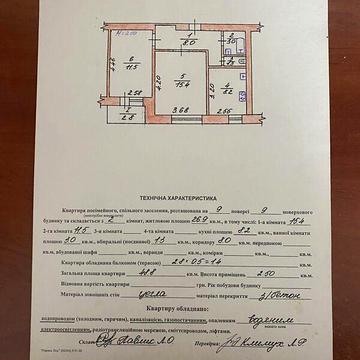 H=2.50
1
8.0
2
3.0
6
11.5
4.46
4.20
5
15.4
3.20
4
8.2
2.58
3.68
2.56
2.8
ТЕХНІЧНА ХАРАКТЕРИСТИКА
Квартира посімейного, спільного заселення, розташована на 9 поверсі 9 поверхового
будинку та складається з 2 кімнат, житловою площею 26.9 кв.м, в тому числі: 1-а кімната 15.4
2-га кімната 11.5 кв.м., 3-а кімната кв.м., 4-та кімната кв.м., кухні площею 8.2 кв.м., ванної кімнати
площею 3.0 кв.м., вбиральні (поєднаної) 1.3 кв.м., коридору 8.0 кв.м., передпокою
кв.м., вбудованої шафи кв.м., кв.м., кв.м.
Квартира обладнана балконом (терасою) 2.8×0.5=1.4 кв.м.
Загальна площа квартири 48.8 кв.м. Висота приміщень 2.50
Відновна вартість квартири грн. Рік побудови будинку
Матеріал зовнішніх стін цегла матеріал перекриття з/бетон
Квартиру обладнано:
водопроводом (холодним, гарячим), каналізацією, газопостачанням, опаленням водяним
електроосвітленням, радіотрансляційною мережею, сміттєпроводом, ліфтами.
Склав Перевірив: